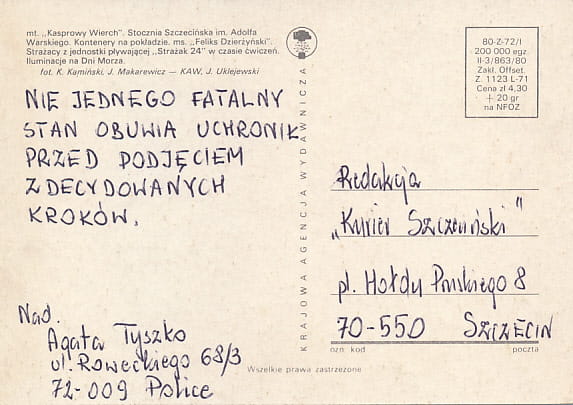 mt. ,,Kasprowy Wierch". Stocznia Szczecińska im. Adolfa
Warskiego. Kontenery na pokładzie. ms. ,,Feliks Dzierżyński".
Strażacy z jednostki pływającej ,,Strażak 24" w czasie ćwiczeń.
Iluminacje na Dni Morza.
fot. K. Kamiński, J. Makarewicz — KAW, J. Uklejewski
NIE JEDNEGO FATALNY
STAN OBUWIA UCHRONIŁ
PRZED PODJĘCIEM
ZDECYDOWANYCH
KROKÓW.
Nad.
Agata Tyszko
ul. Roweckiego 68/3
72-009 Police
KRAJOWA AGENCJA WYDAWNICZA
80-Z-72/I
200 000 egz.
II-3/863/80
Zakl. Offset.
Z. 1123 L-71
Cena zł 4,30
+ 20 gr
na NFOZ
Redakcja
„Kurier Szczeciński"
pl. Hołdu Pruskiego 8
70-550 SZCZECIN
ozn. kod poczta
Wszelkie prawa zastrzeżone